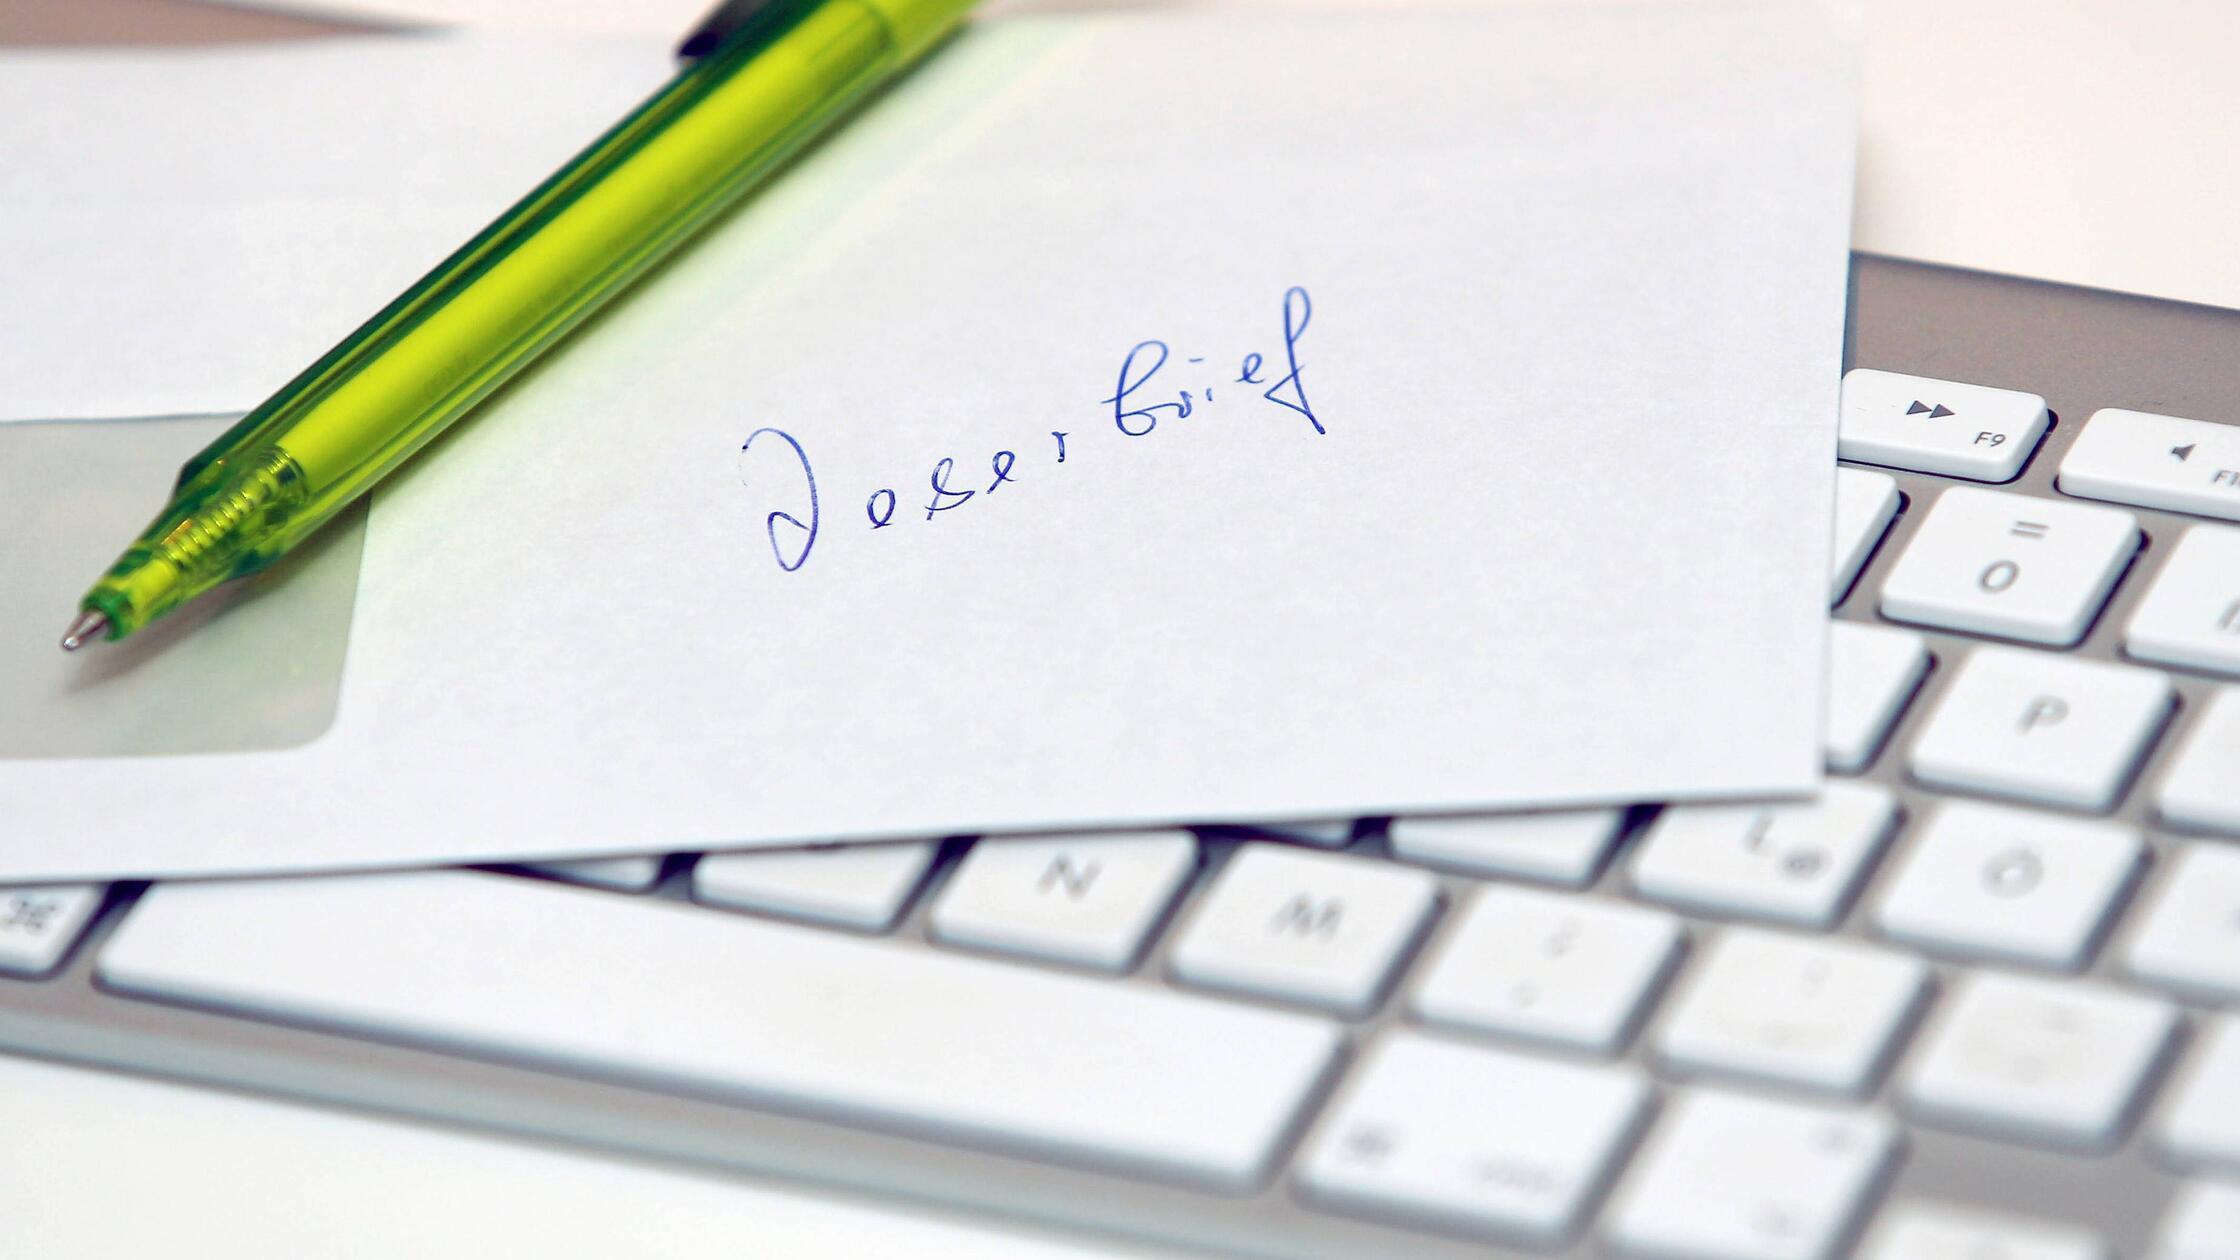 Leserbrief
F9
=
0
P
L @
Ö
N
M